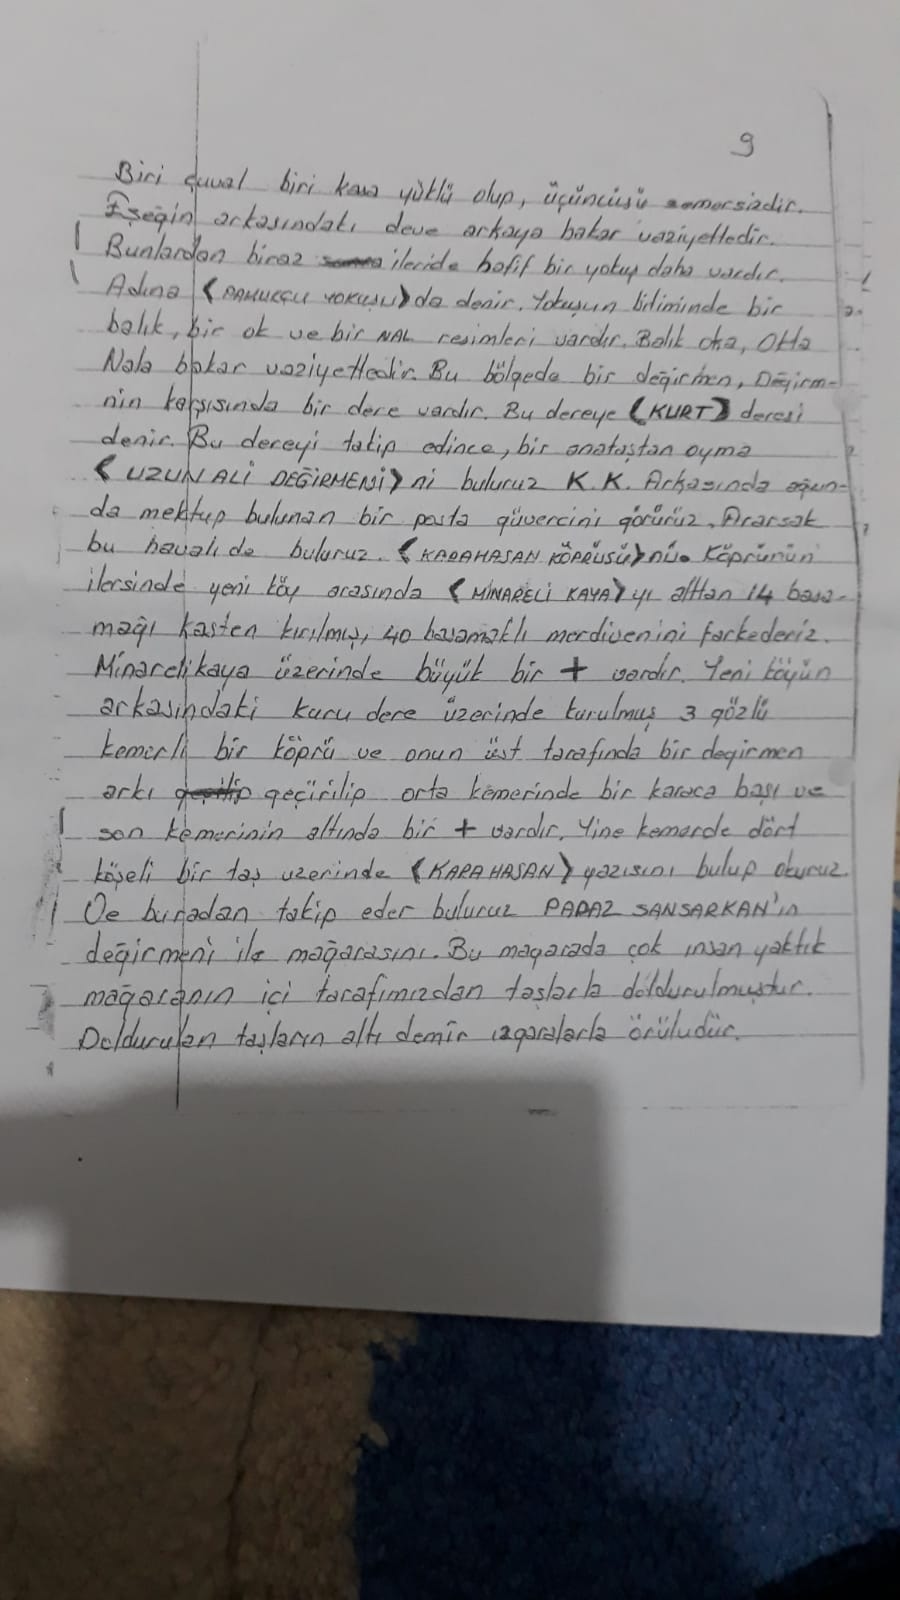 9
Biri çuval biri kasa yüklü olup, üçüncüsü semersizdir.
Eşeğin arkasındaki deve arkaya bakar vaziyettedir.
Bunlardan biraz ileride hafif bir yokuş daha vardır.
Adına (PAMUKÇU YOKUŞU) da denir. Yokuşun bitiminde bir
balık, bir ok ve bir NAL resimleri vardır. Balık oka, Okta
Nala bakar vaziyettedir. Bu bölgede bir değirmen, Değirm-
nin karşısında bir dere vardır. Bu dereye (KURT) deresi
denir. Bu dereyi takip edince, bir anataştan oyma
(UZUN ALİ DEĞİRMENİ) ni buluruz K.K. Arkasında ağzın-
da mektup bulunan bir posta güvercini görürüz. Ararsak
bu havalide buluruz. (KARAHASAN KÖPRÜSÜ) nü. Köprünün
ilersinde yeni köy arasında (MİNARELİ KAYA) yı alttan 14 basa-
mağı kasten kırılmış, 40 basamaklı merdivenini farkederiz.
Minarelikaya üzerinde büyük bir + vardır. Yeni köyün
arkasındaki kuru dere üzerinde kurulmuş 3 gözlü
kemerli bir köprü ve onun üst tarafında bir degirmen
arkı geçirilip orta kemerinde bir karaca başı ve
son kemerinin altında bir + vardır. Yine kemerde dört
köşeli bir taş uzerinde (KARA HASAN) yazısını bulup okuruz.
Ve buradan takip eder buluruz PAPAZ SANSARKAN'ın
değirmeni ile mağarasını. Bu magarada çok insan yaktık
mağaranın içi tarafımızdan taşlarla doldurulmuştur.
Doldurulan taşların altı demir ızgaralarla örülüdür.